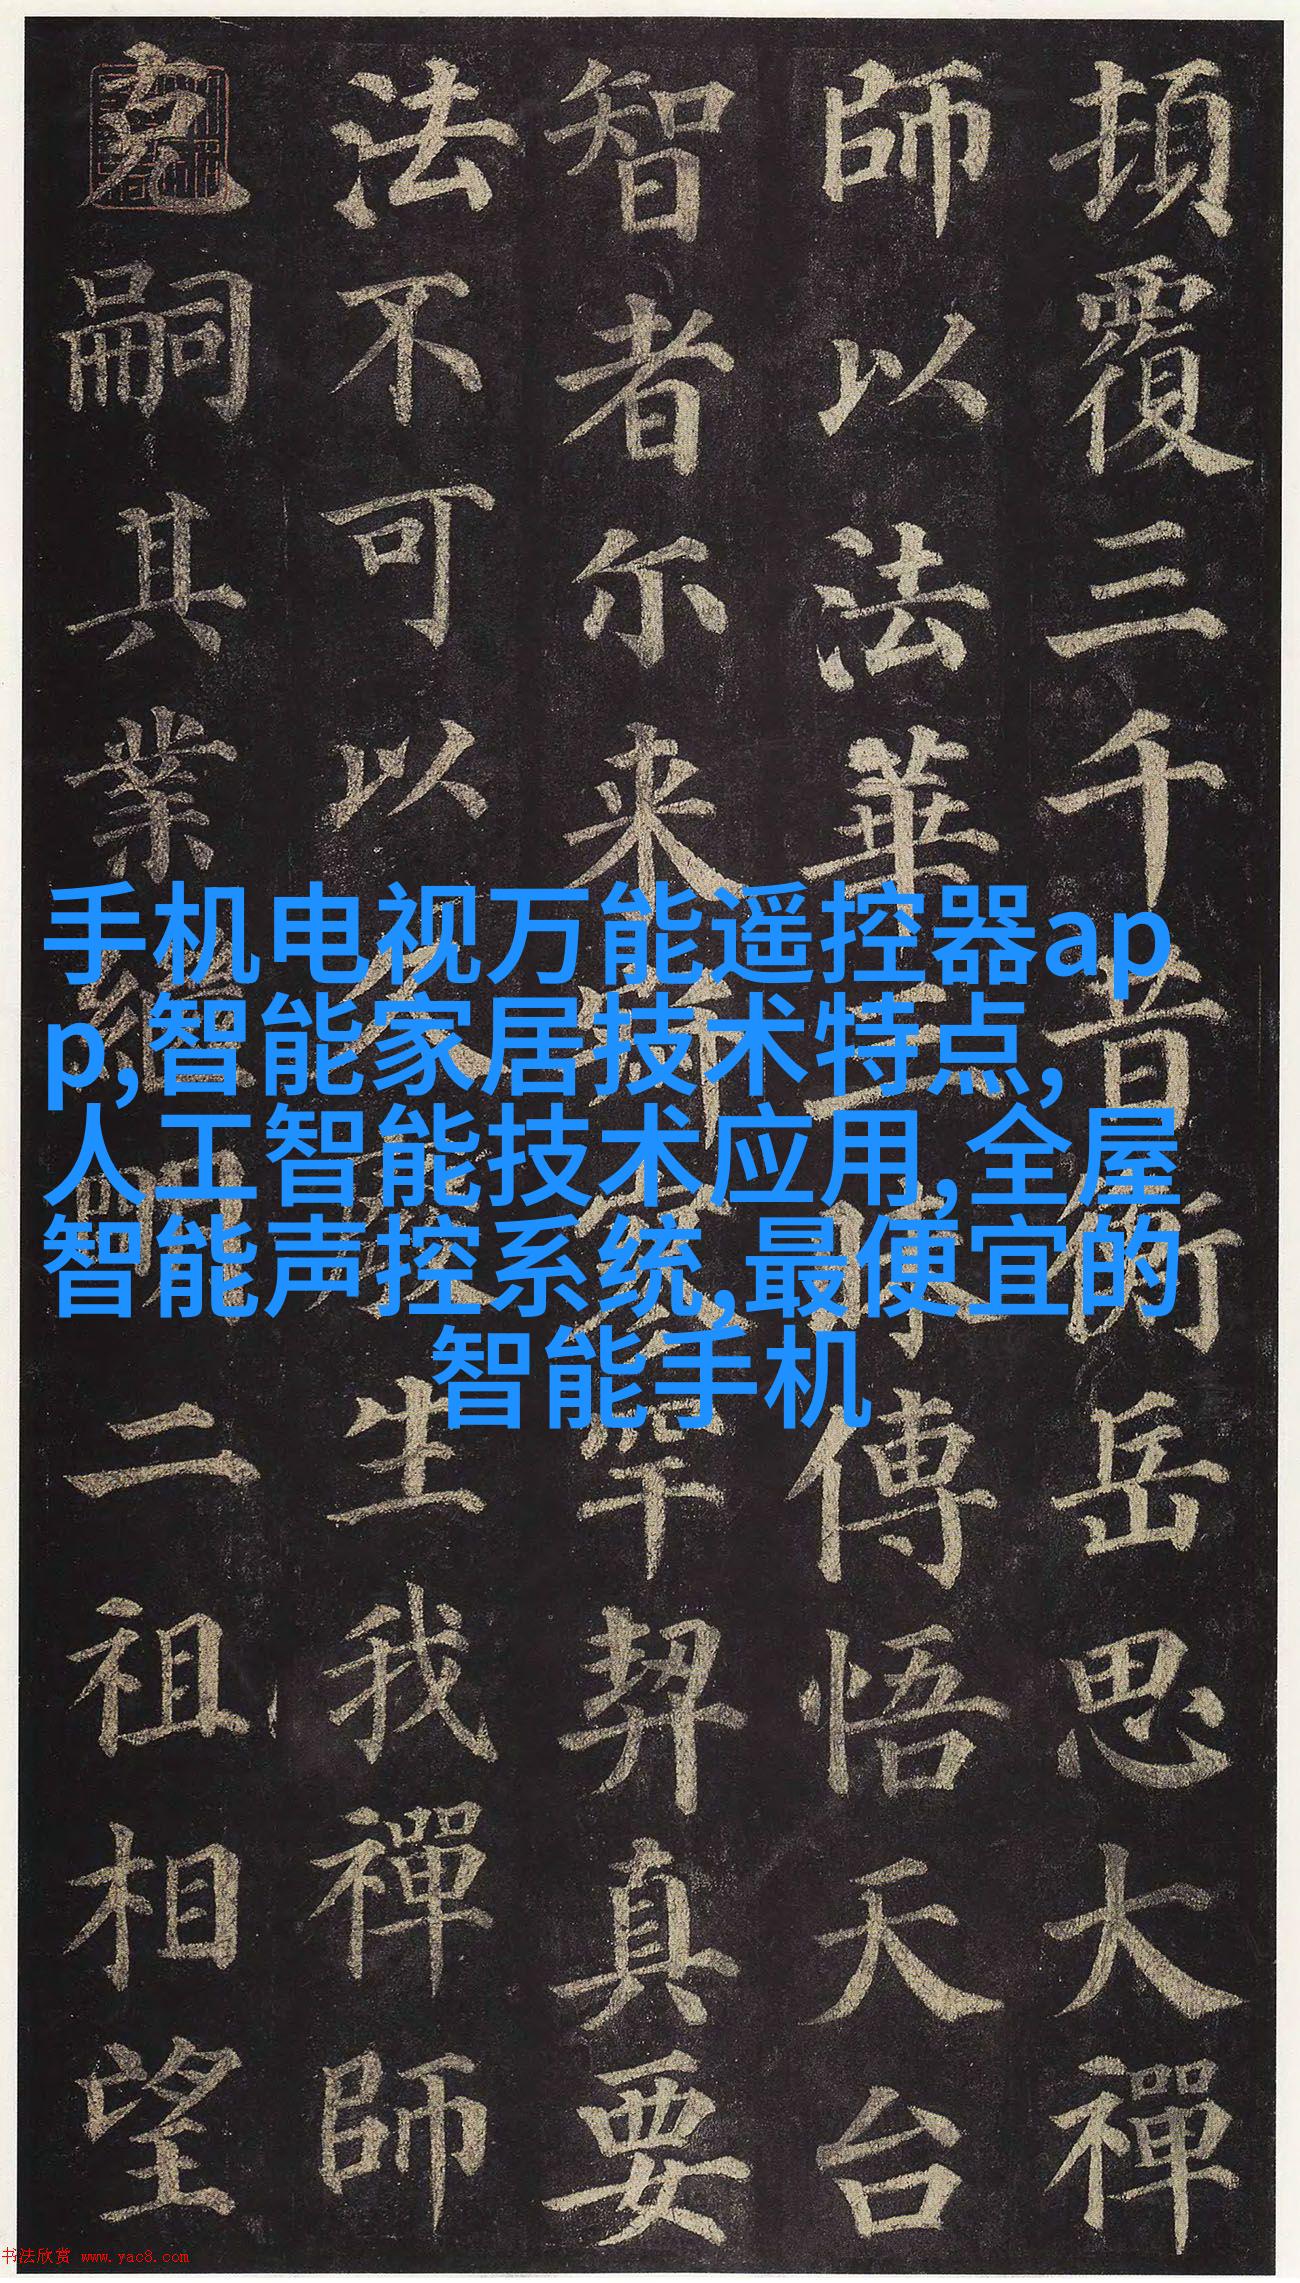 頓覆三千昔衡岳思大禪
師以法華三昧傳悟天台
智者尓来寂寥罕契真要
法不可以久廢生我禪師
克嗣其業繼明二祖相望
手机电视万能遥控器ap
p,智能家居技术特点,
人工智能技术应用,全屋
智能声控系统,最便宜的
智能手机
书法欣赏 www.yac8.com